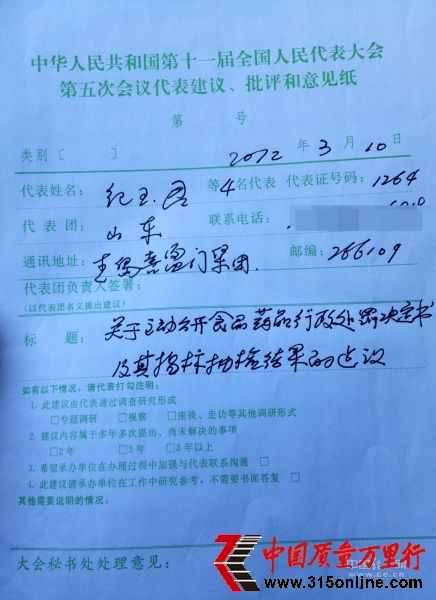 中华人民共和国第十一届全国人民代表大会
第五次会议代表建议、批评和意见纸
第 号
类别〔 〕 2012 年 3 月 10 日
代表姓名： 纪玉君 等 4 名代表 代表证号码： 1264
代表团： 山东 联系电话：
通讯地址： 青岛喜盈门集团. 邮编： 266109
代表团负责人签署：
(以代表团名义提出建议)
标 题： 关于主动公开食品药品行政处罚决定书
及其指标抽检结果的建议
如有以下情况，请代表打勾注明：
1. 此建议由代表通过调查研究形成
□专题调研 □视察 □座谈、走访等其他调研形式
2. 建议内容属于多年多次提出、尚未解决的事项
□2 年 □3 年 □3 年以上
3. 希望承办单位在办理过程中加强与代表联系沟通 □
4. 此建议请承办单位在工作中研究参考，不需要书面答复 □
其他需要说明的情况：
大会秘书处处理意见：
中国质量万里行
www.315online.com
www.ce.cn